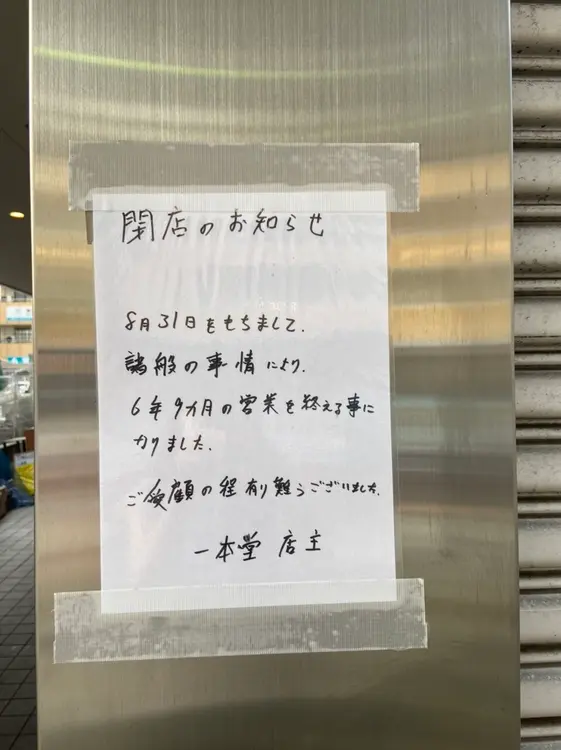 閉店のお知らせ
8月31日をもちまして、
諸般の事情により、
6年9ヵ月の営業を終える事に
なりました。
ご愛顧の程有難うございました。
一本堂 店主